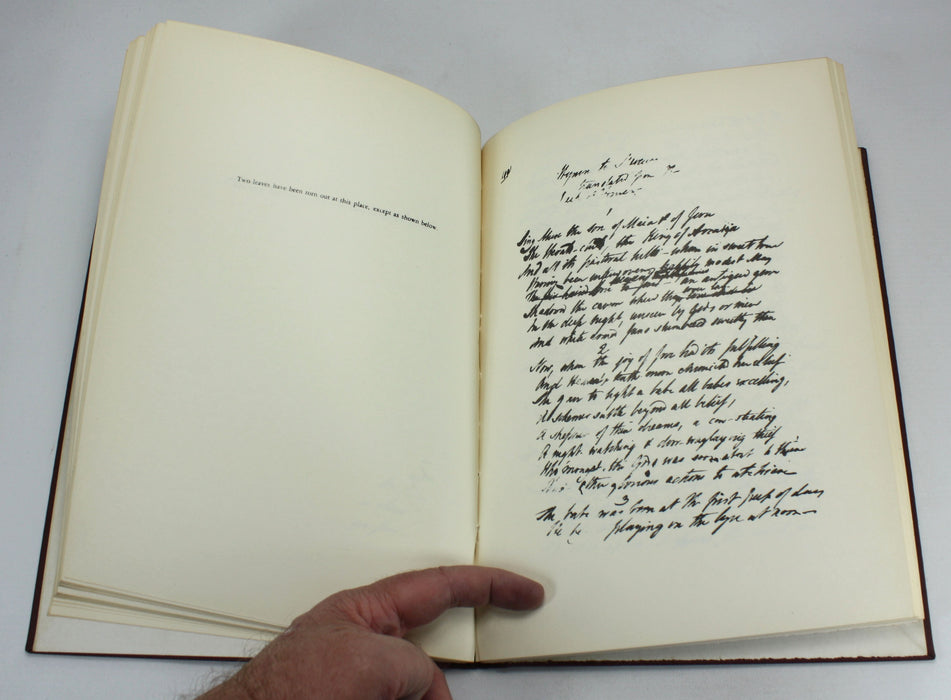 Two leaves have been torn out at this place, except as shown below.
Hymn to
Translated from
1
Sing Muse the son of Maia & of Jove
The Herald-child, the King of Arcadia
And all its pastoral hills – whom in sweet love
Having been interwoven modest May
an antique grove
Shadowed the cavern where the
In the deep night, unseen by Gods or men
And white armed Juno slumbered sweetly then
2
Now, when the joy of Jove had its fulfilling
And Heaven's tenth moon chronicled her relief
She gave to light a babe all babes excelling,
A schemer subtle beyond all belief;
A shepherd of thin dreams, a cow-stealing
A night-watching & door-waylaying thief
Who mongst the Gods was soon about to thieve
other glorious actions to atchieve
3
The babe was born at the first peep of day
He be playing on the lyre at noon—